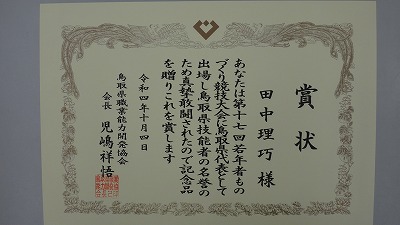 賞状
田中理巧 様
あなたは第十七回若年者もの
づくり競技大会に鳥取県代表として
出場し鳥取県技能者の名誉の
ため真摯敢闘されたので記念品
を贈りこれを賞します
令和四年十月四日
鳥取県職業能力開発協会
会長 児嶋祥悟